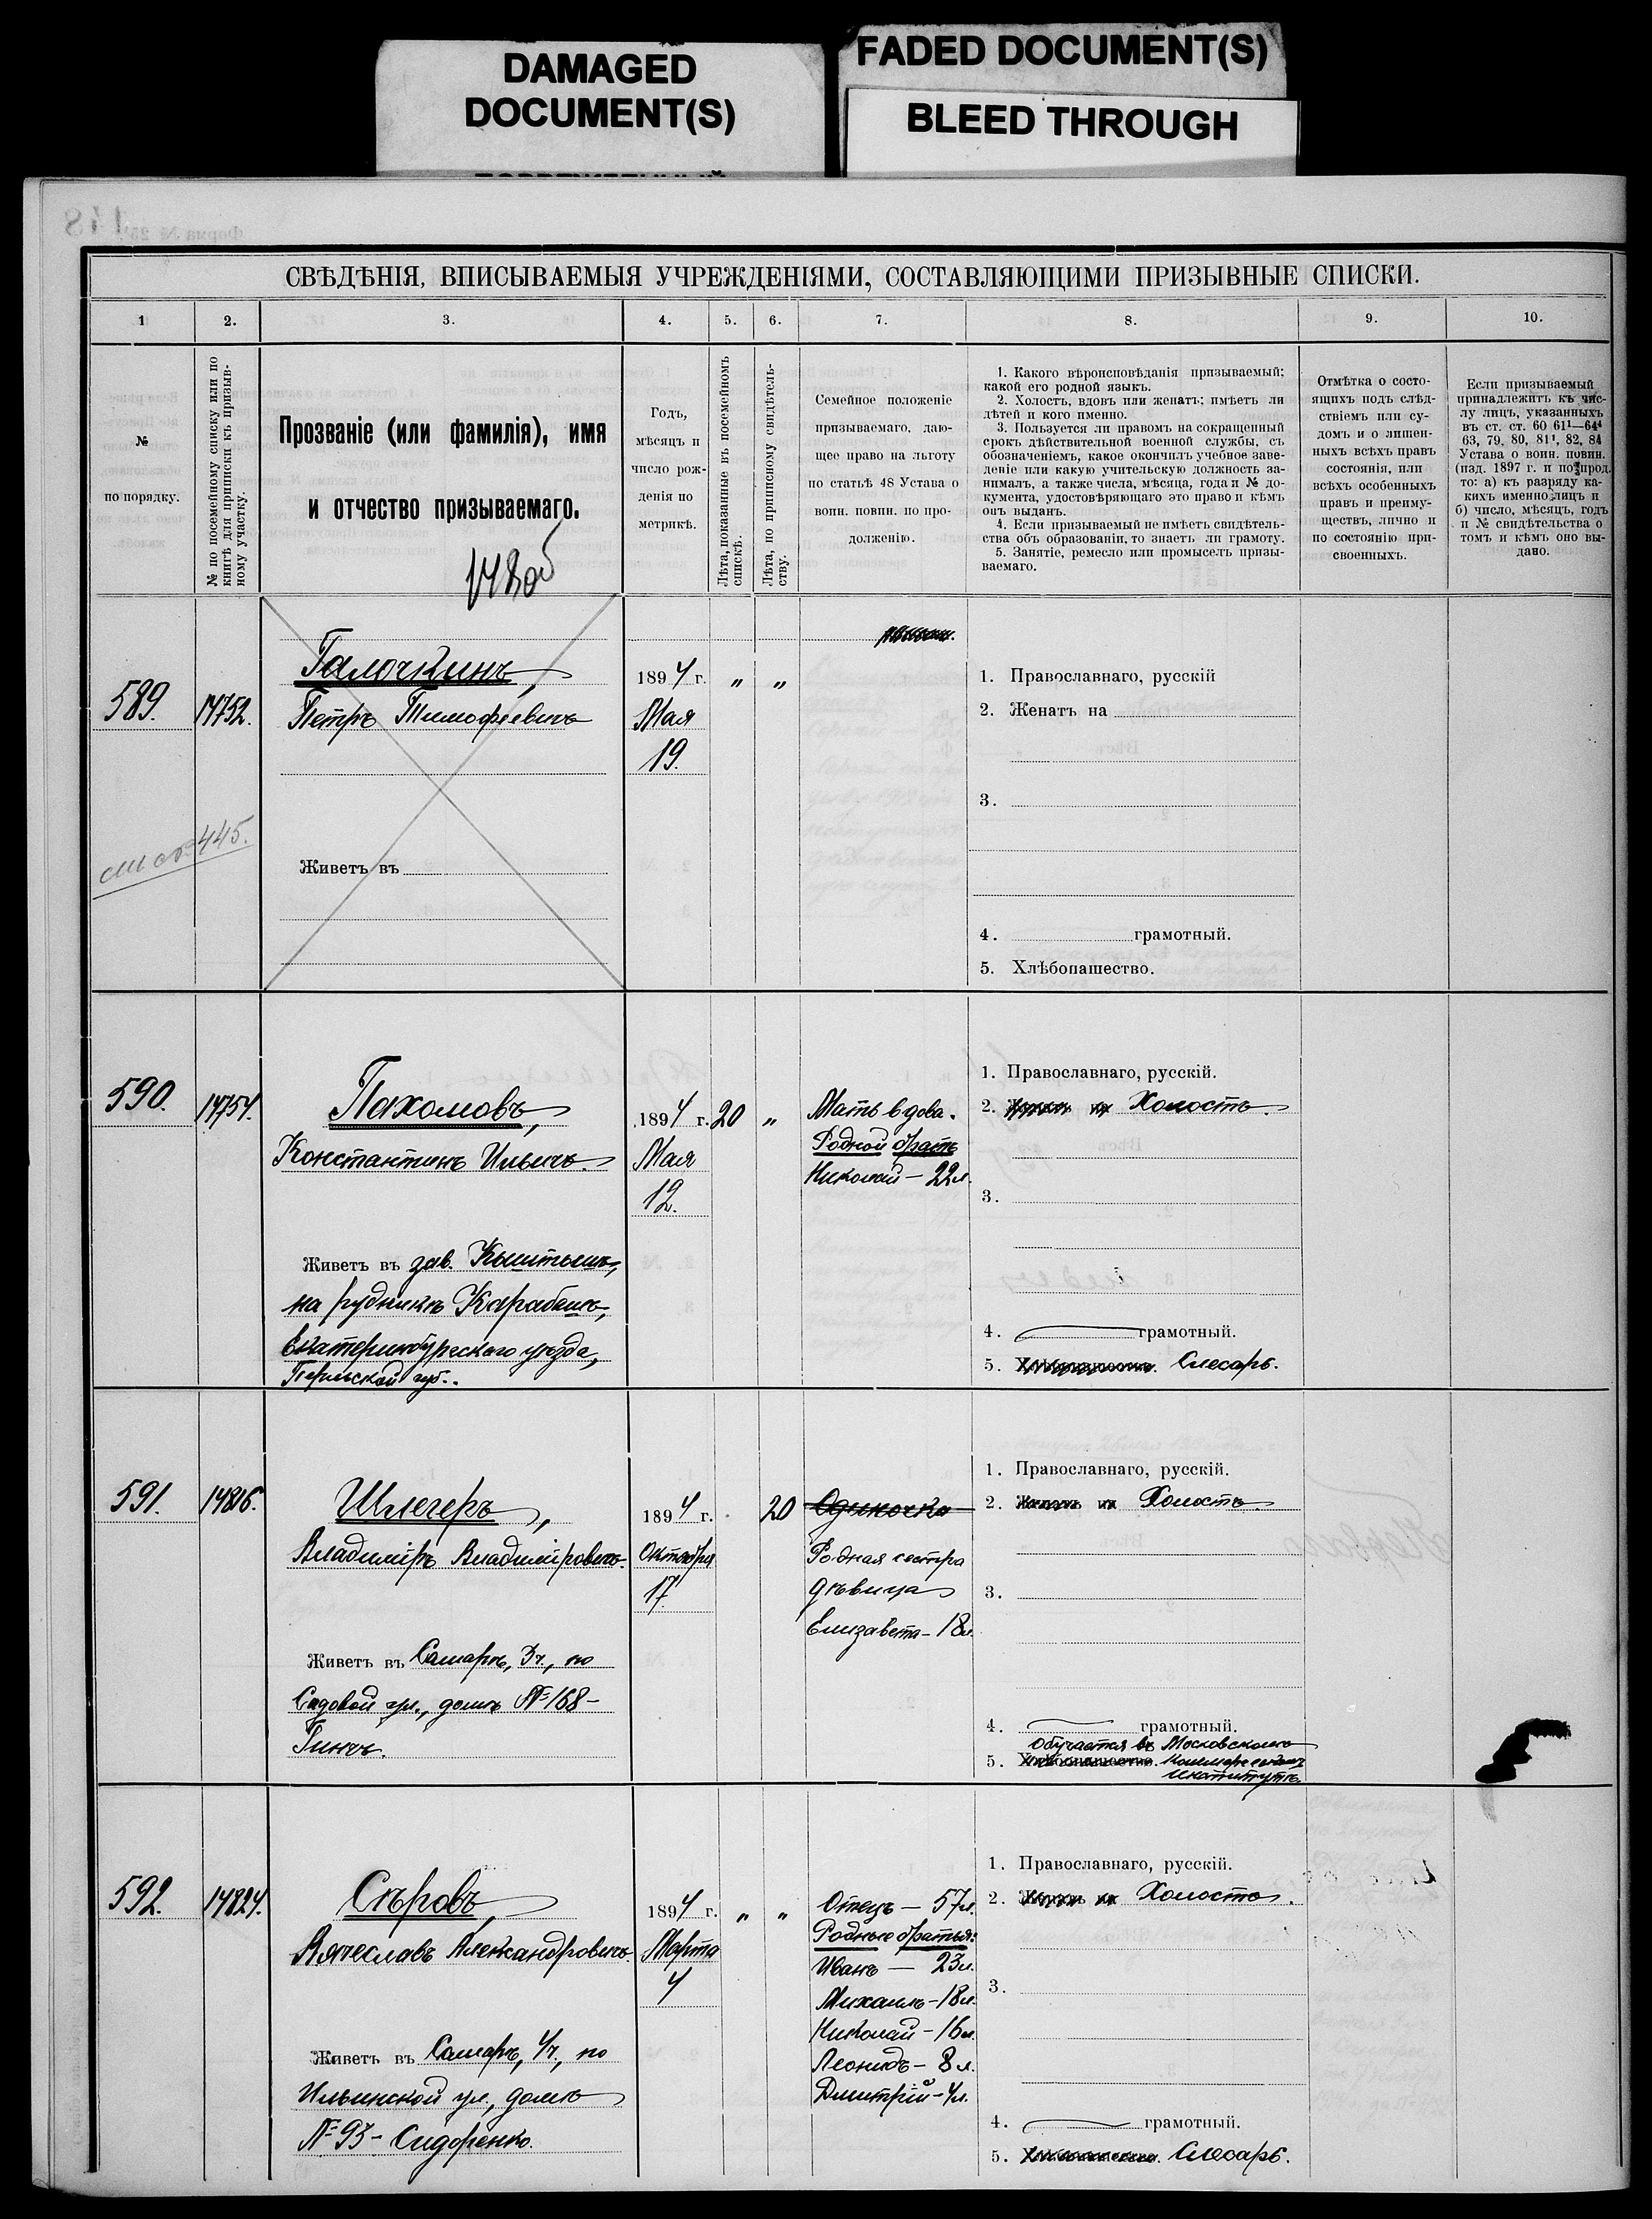 DAMAGED
DOCUMENT(S)
FADED DOCUMENT(S)
BLEED THROUGH
СВѢДѢНІЯ, ВПИСЫВАЕМЫЯ УЧРЕЖДЕНІЯМИ, СОСТАВЛЯЮЩИМИ ПРИЗЫВНЫЕ СПИСКИ.
1 2. 3. 4. 5. 6. 7. 8. 9. 10.
№
по порядку.
№ по посемейному списку или по
книгѣ для приписки къ призыв-
ному участку.
Прозваніе (или фамилія), имя
и отчество призываемаго.
148об
Годъ,
мѣсяцъ и
число рож-
денія по
метрикѣ.
Лѣта, показанные въ посемейномъ
спискѣ.
Лѣта, по приписному свидѣтель-
ству.
Семейное положеніе
призываемаго, даю-
щее право на льготу
по статьѣ 48 Устава о
воин. повин. по про-
долженію.
1. Какого вѣроисповѣданія призываемый;
какой его родной языкъ.
2. Холостъ, вдовъ или женатъ; имѣетъ ли
дѣтей и кого именно.
3. Пользуется ли правомъ на сокращенный
срокъ дѣйствительной военной службы, съ
обозначеніемъ, какое окончилъ учебное заве-
деніе или какую учительскую должность за-
нималъ, а также числа, мѣсяца, года и № до-
кумента, удостовѣряющаго это право и кѣмъ
онъ выданъ.
4. Если призываемый не имѣетъ свидѣтель-
ства объ образованіи, то знаетъ ли грамоту.
5. Занятіе, ремесло или промыселъ призы-
ваемаго.
Отмѣтка о состо-
ящихъ подъ слѣд-
ствіемъ или су-
домъ и о лишен-
ныхъ всѣхъ правъ
состоянія, или
всѣхъ особенныхъ
правъ и преиму-
ществъ, лично и
по состоянію при-
своенныхъ.
Если призываемый
принадлежитъ къ чис-
лу лицъ, указанныхъ
въ ст. ст. 60 61¹—64⁴
63, 79, 80, 81¹, 82, 84
Устава о воин. повин.
(изд. 1897 г. и по прод.
то: а) къ разряду ка-
кихъ именно лицъ и
б) число, мѣсяцъ, годъ
и № свидѣтельства о
томъ и кѣмъ оно вы-
дано.
589. 14752.
Галочкинъ,
Петръ Тимофеевичъ
Живетъ въ
1894 г. " "
Мая
19.
1. Православнаго, русскій
2. Женатъ на
3.
4. грамотный.
5. Хлѣбопашество.
445.
590. 14754.
Пахомовъ,
Константинъ Ильичъ.
Живетъ въ зав. Кыштымъ,
на рудникѣ Карабашъ,
Екатеринбургскаго уѣзда,
Пермской губ..
1894 г. 20 "
Мая
12.
Мать вдова.
Родной братъ
Николай — 22 л.
1. Православнаго, русскій.
2. Женатъ на Холостъ.
3.
4. грамотный.
5. Хлѣбопашество. Слесарь.
591. 14816.
Шлегеръ,
Владиміръ Владиміровичъ.
Живетъ въ Самарѣ, 3ч., по
Садовой ул., домъ № 168 –
Гинчъ.
1894 г. 20
Октября
17.
Одиночка
Родная сестра
дѣвица
Елизавета – 18 л.
1. Православнаго, русскій.
2. Женатъ на Холостъ.
3.
4. грамотный.
Обучается въ Московскомъ
5. Хлѣбопашество. Коммерческомъ
Институтѣ.
592. 14824.
Сѣровъ,
Вячеславъ Александровичъ.
Живетъ въ Самарѣ, 4ч., по
Ильинской ул., домъ
№ 93 – Сидоренко.
1894 г. " "
Марта
4
Отецъ — 57 л.
Родные братья:
Иванъ — 23 л.
Михаилъ – 18 л.
Николай – 16 л.
Леонидъ – 8 л.
Дмитрій – 4 л.
1. Православнаго, русскій.
2. Женатъ на Холостъ.
3.
4. грамотный.
5. Хлѣбопашество. Слесарь.